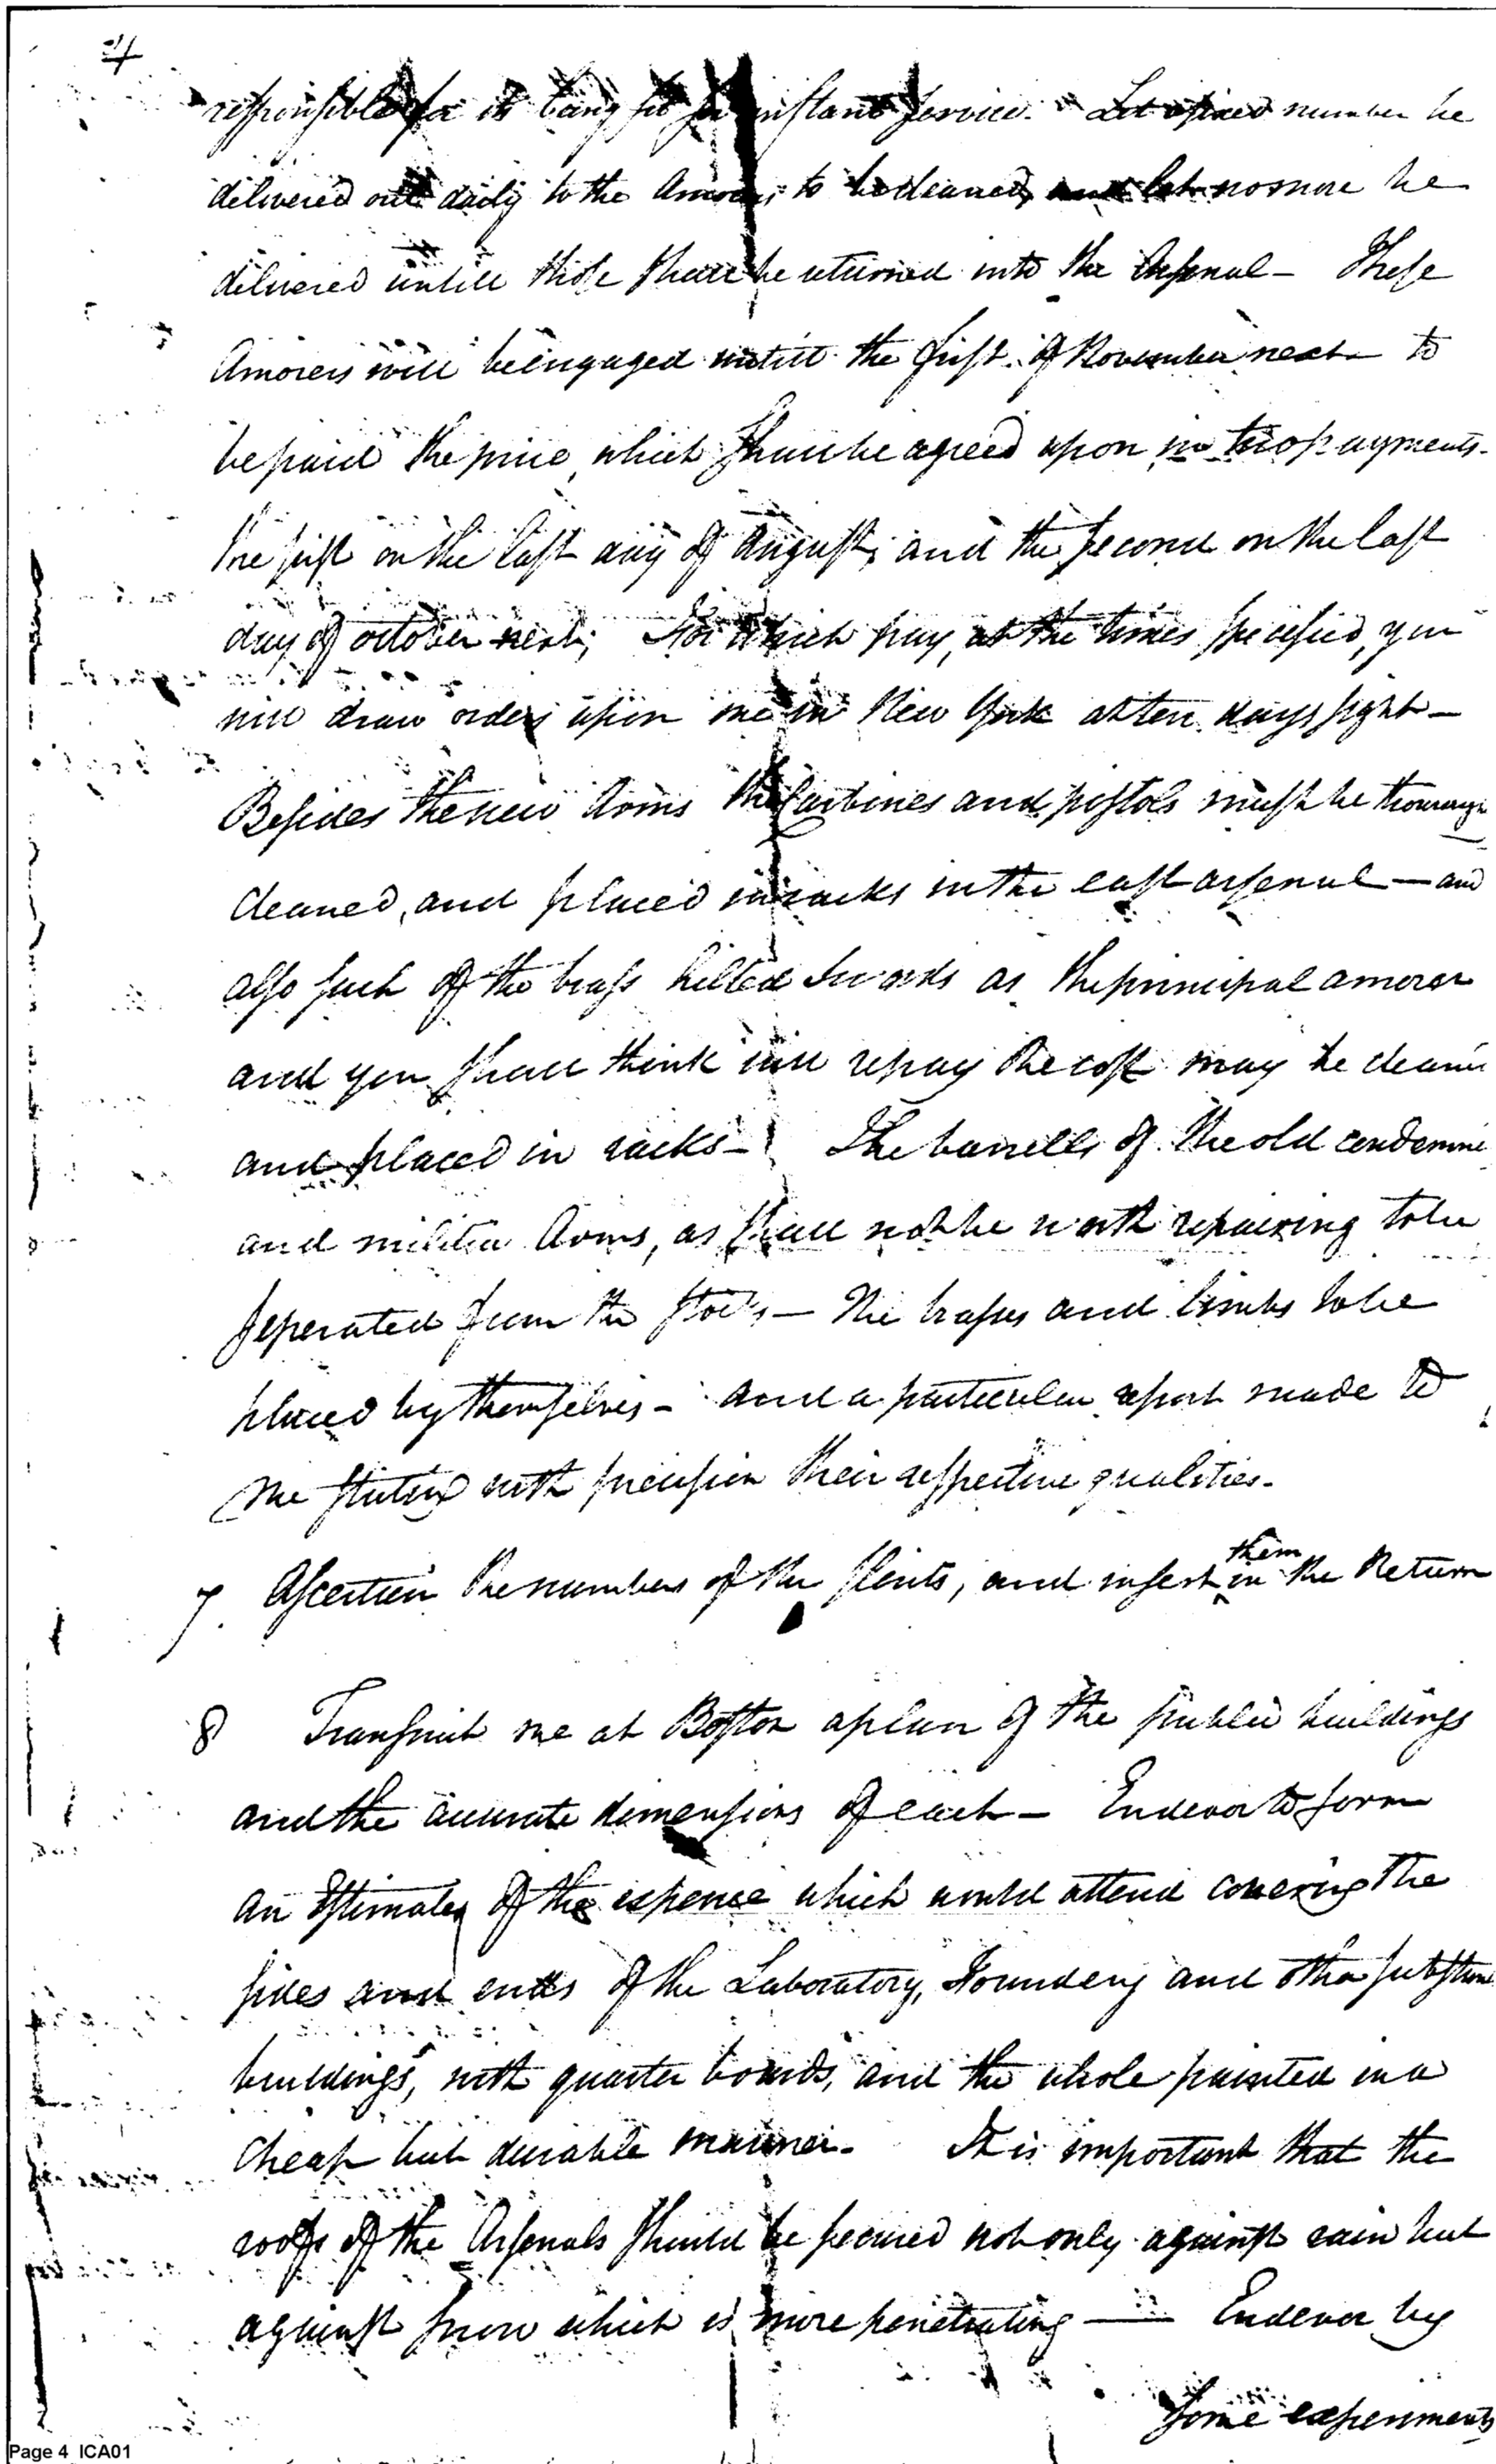 4
responsible for its being fit for instant service. Let a fixed number be
delivered out daily to the Amorers to be cleaned, and let no more be
delivered untill those shall be returned into the Arsenal — These
Amorers will be engaged untill the first of November next to
be paid the price, which shall be agreed upon in two payments.
The first on the last day of August, and the second on the last
day of october next; For which pay, at the times specified, you
will draw orders upon me in New York at ten days sight —
Besides the new Arms the Carbines and pistols must be
cleaned, and placed in racks in the east arsenal — and
also such of the brass hilted Swords as the principal amorer
and you shall think will repay the cost may be
and placed in racks — The barrells of the old
and militia Arms, as shall not be worth repairing to be
seperated from the stocks — The brasses and limbs to be
placed by themselves — and a particular report made to
me stating with precision their respective qualities.
7. Ascertain the numbers of the flints, and insert them in the Return
8 Transmit me at Boston a plan of the public buildings
and the accurate dimensions of each — Endevor to form
an Estimate of the expence which would attend covering the
sides and ends of the Laboratory, Foundery and other
buildings, with quarter boards, and the whole painted in a
cheap but durable manner. It is important that the
roofs of the Arsenals should be secured not only against rain but
against snow which is more penetrating — Endevor by
some experiments
Page 4 ICA01